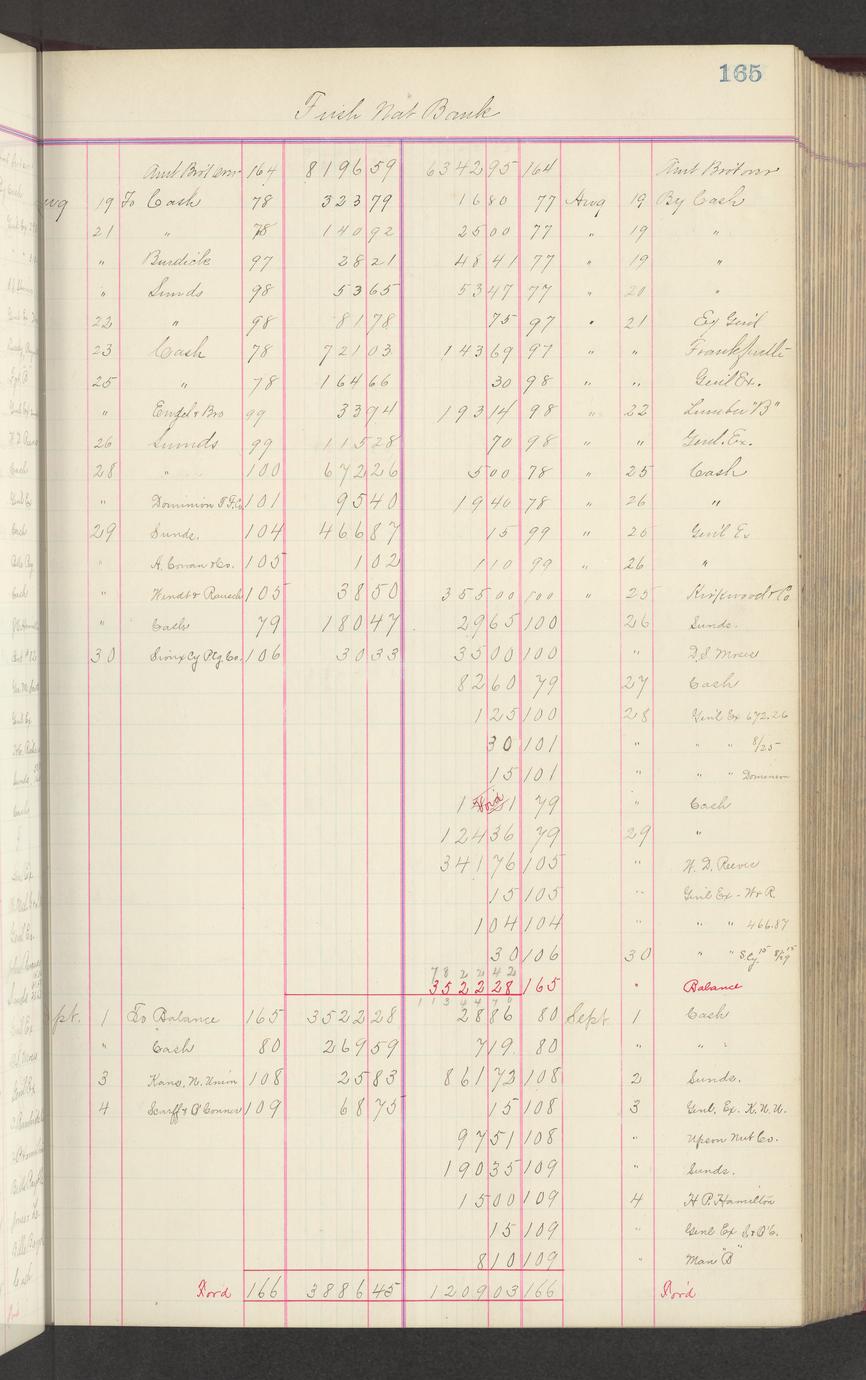 165
First Nat Bank
Amt Bro't over 164 8196 59 6342 95 164 Amt Brot over
19 To Cash 78 323 79 16 80 77 Aug 19 By Cash
21 " 78 140 92 25 00 77 " 19 "
" Burdick 97 28 21 48 41 77 " 19 "
" Sunds 98 53 65 53 47 77 " 20 "
22 " 98 81 78 75 97 " 21 Ex Genl
23 Cash 78 721 03 143 69 97 " "
25 " 78 164 66 30 98 " " Genl Ex.
" Engel & Bro 99 33 94 193 14 98 " 22 Lumber "B"
26 Sunds 99 115 28 70 98 " " Genl. Ex.
28 " 100 672 26 5 00 78 " 25 Cash
" Dominion T. F. Co 101 95 40 19 40 78 " 26 "
29 Sunds. 104 466 87 15 99 " 25 Genl Ex
" A. Cowan & Co. 105 1 02 1 10 99 " 26 "
" Wendt & Rausch 105 38 50 355 00 100 " 25 Kirkwood & Co
" Cash 79 180 47 29 65 100 26 Sunds.
30 Sioux Cy Ptg Co. 106 30 33 35 00 100 " D. S. Morse
82 60 79 27 Cash
1 25 100 28 Genl Ex 672.26
30 101 " " " 8/25
15 101 " " " Dominion
Void 79 " Cash
124 36 79 29 "
341 76 105 " W. D. Reeve
15 105 " Genl Ex - W & R.
1 04 104 " " " 466.87
30 106 30 " "
7822 42
3522 28 165 " Balance
11344 70
1 To Balance 165 3522 28 28 86 80 Sept 1 Cash
" Cash 80 269 59 7 19 80 " "
3 Kans. N. Union 108 25 83 861 72 108 2 Sunds.
4 Scurff & O'Conner 109 68 75 15 108 3 Genl. Ex. K. N. U.
97 51 108 " Upson Nut Co.
190 35 109 " Sunds.
15 00 109 4 H P. Hamilton
15 109 " Genl Ex S & O'C.
8 10 109 " Man "B"
For'd 166 3886 45 1209 03 166 For'd